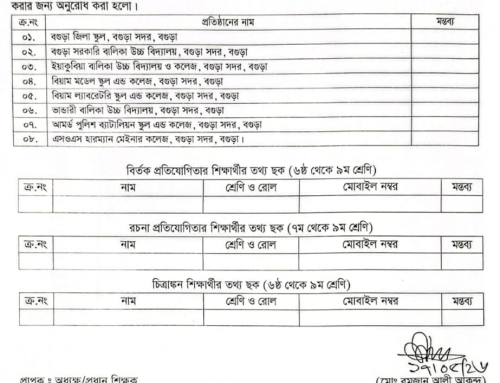 করার জন্য অনুরোধ করা হলো।
ক্র.নং প্রতিষ্ঠানের নাম মন্তব্য
০১. বগুড়া জিলা স্কুল, বগুড়া সদর, বগুড়া
০২. বগুড়া সরকারি বালিকা উচ্চ বিদ্যালয়, বগুড়া সদর, বগুড়া
০৩. ইয়াকুবিয়া বালিকা উচ্চ বিদ্যালয় ও কলেজ, বগুড়া সদর, বগুড়া
০৪. বিয়াম মডেল স্কুল এন্ড কলেজ, বগুড়া সদর, বগুড়া
০৫. বিয়াম ল্যাবরেটরি স্কুল এন্ড কলেজ, বগুড়া সদর, বগুড়া
০৬. ভান্ডারী বালিকা উচ্চ বিদ্যালয়, বগুড়া সদর, বগুড়া
০৭. আমর্ড পুলিশ ব্যাটালিয়ন স্কুল এন্ড কলেজ, বগুড়া সদর, বগুড়া
০৮. এসওএস হারম্যান মেইনার কলেজ, বগুড়া সদর, বগুড়া।
বির্তক প্রতিযোগিতার শিক্ষার্থীর তথ্য ছক (৬ষ্ঠ থেকে ৯ম শ্রেণি)
ক্র.নং নাম শ্রেণি ও রোল মোবাইল নম্বর মন্তব্য
রচনা প্রতিযোগিতার শিক্ষার্থীর তথ্য ছক (৭ম থেকে ৯ম শ্রেণি)
ক্র.নং নাম শ্রেণি ও রোল মোবাইল নম্বর মন্তব্য
চিত্রাঙ্কন শিক্ষার্থীর তথ্য ছক (৬ষ্ঠ থেকে ৯ম শ্রেণি)
ক্র.নং নাম শ্রেণি ও রোল মোবাইল নম্বর মন্তব্য
প্রাপক : অধ্যক্ষ/প্রধান শিক্ষক (মোঃ রমজান আলী আকন্দ)